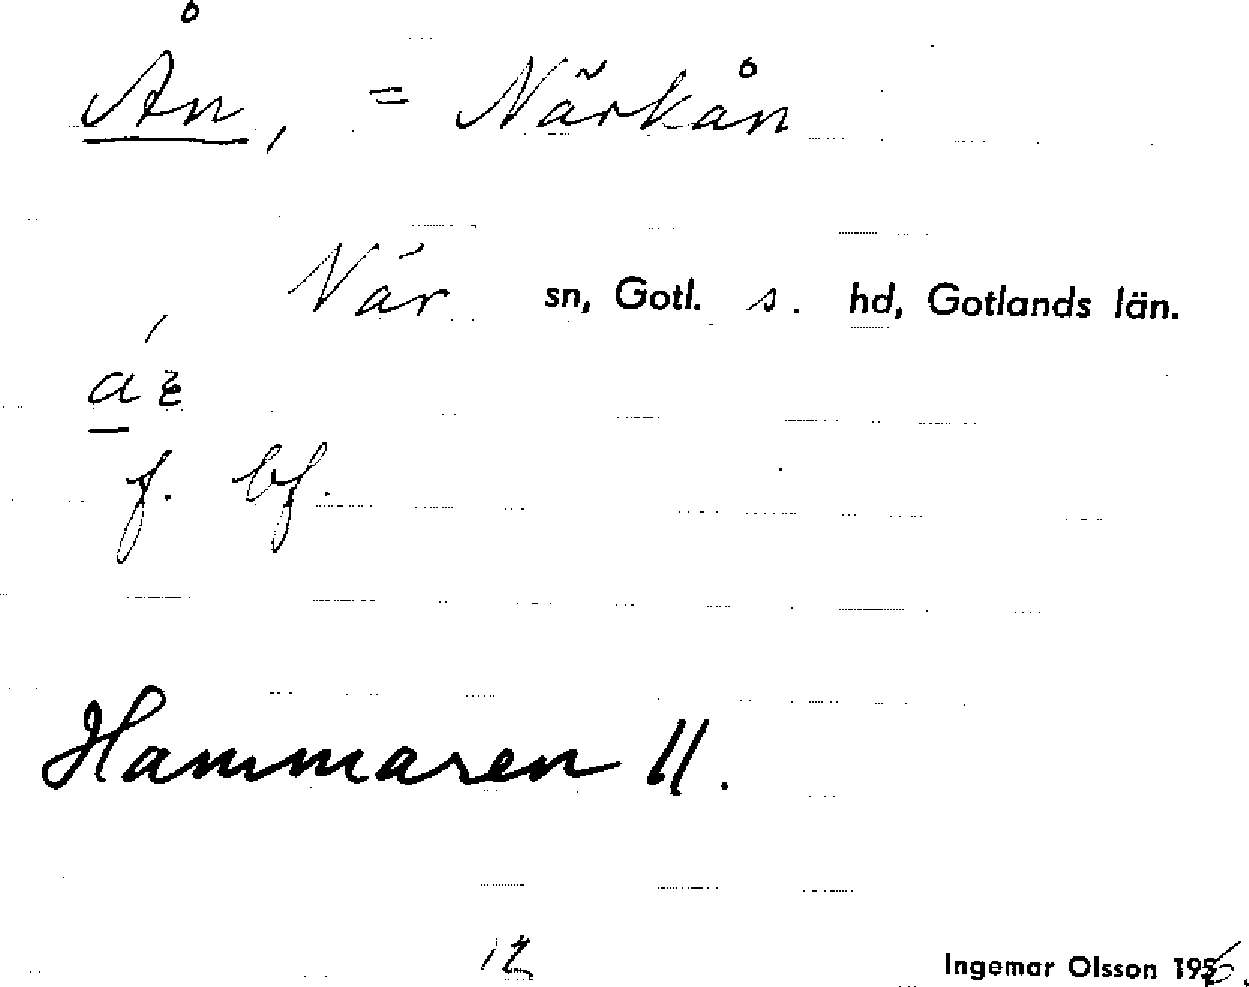 Ån, = Närkån
När sn, Gotl. s. hd, Gotlands län.
f. bf.
Hammaren 11.
12
Ingemar Olsson 1956.